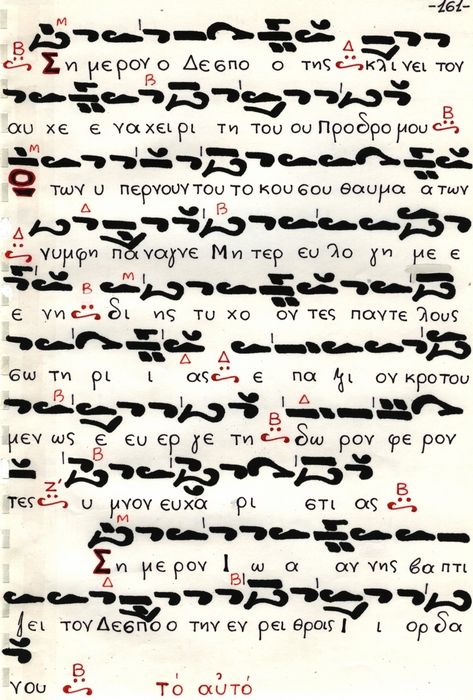 -161-
Σημερον ο Δεσπο ο της κλινει τον
αυ χε ε να χει ρι τη του ου Προδρομου
Ω των υ περ νουν του το κου σου θαυμα α των
νυμφη πα ναγνε Μη τερ ευ λο γη με ε
ε νη δι ης τυ χο ον τες παν τε λους
σω τη ρι ι ας ε πα ξι ον κροτου
μεν ως ε ευ ερ γε τη δω ρον φε ρον
τες υ μνον ευχα ρι στι ας
Ση με ρον Ι ω α αν νης βα πτι
ζει τον Δεσπο ο την εν ρει θροις Ι ι ορ δα
νου Το αυτό